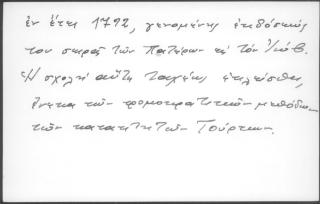 ἐν ἔτει 1792, γενομένης ἐκδόσεως
του σειρᾶς τῶν Πατέρων εἰς τόν Ἰώβ.
Ἡ σχολή αὕτη ταχέως ἐκλείσθη,
ἕνεκα τῶν τρομοκρατικῶν μεθόδων
τῶν κατακτητῶν Τούρκων.